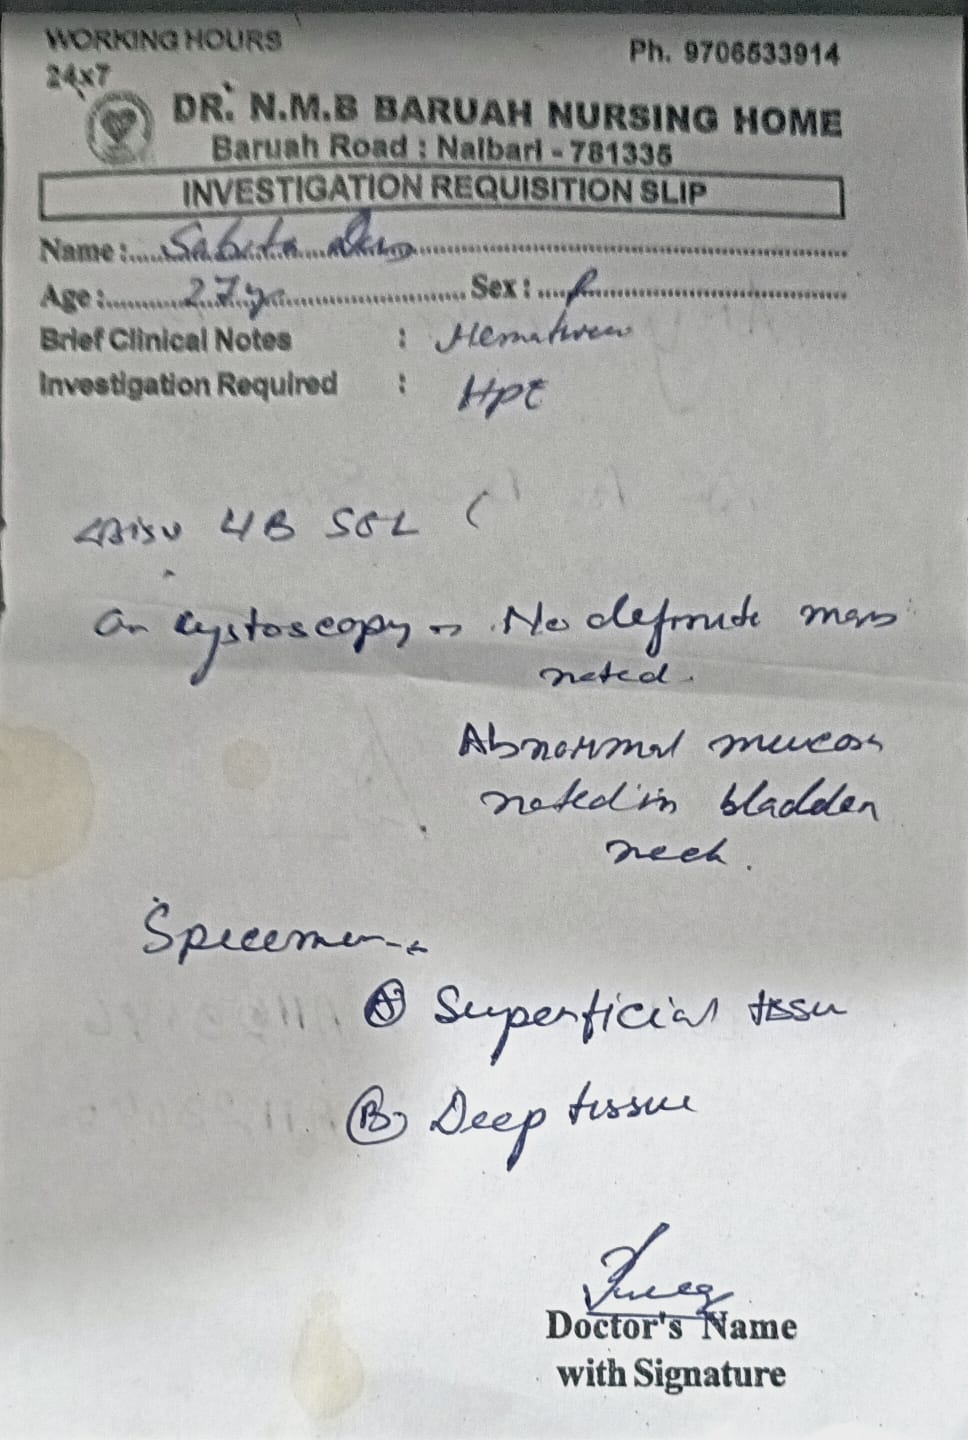 WORKING HOURS
24x7
Ph. 9706533914
DR. N.M.B BARUAH NURSING HOME
Baruah Road : Nalbari - 781335
INVESTIGATION REQUISITION SLIP
Name : Sabita Das
Age : 27 yr Sex : F
Brief Clinical Notes :
Investigation Required : HPE
UB SOL (
On cystoscopy No definite mass
noted.
Abnormal mucosa
noted in bladder
neck.
Specimen
(A) Superficial tissu
(B) Deep tissue
Doctor's Name
with Signature